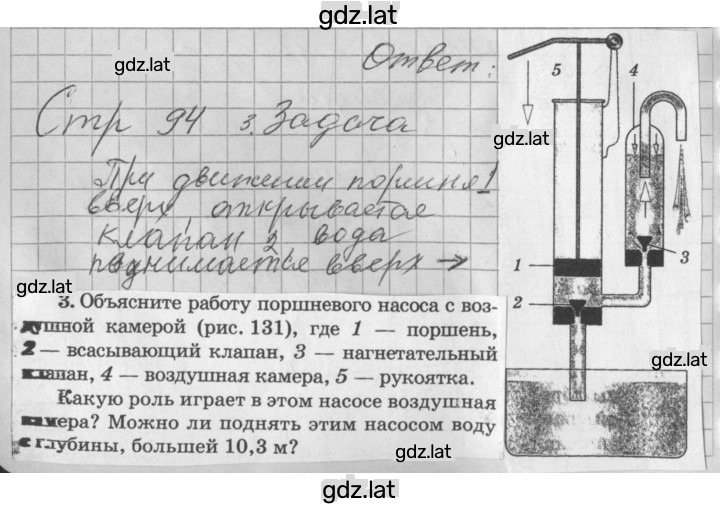 gdz.lat
gdz.lat
Ответ:
Стр 94 3. Задача
При движении поршня 1
вверх открывается
клапан 2 вода
поднимается вверх →
gdz.lat
3. Объясните работу поршневого насоса с воз-
душной камерой (рис. 131), где 1 — поршень,
2 — всасывающий клапан, 3 — нагнетательный
клапан, 4 — воздушная камера, 5 — рукоятка.
Какую роль играет в этом насосе воздушная
камера? Можно ли поднять этим насосом воду
с глубины, большей 10,3 м?
gdz.lat
5
4
gdz.lat
1
3
2
gdz.lat
gdz.lat